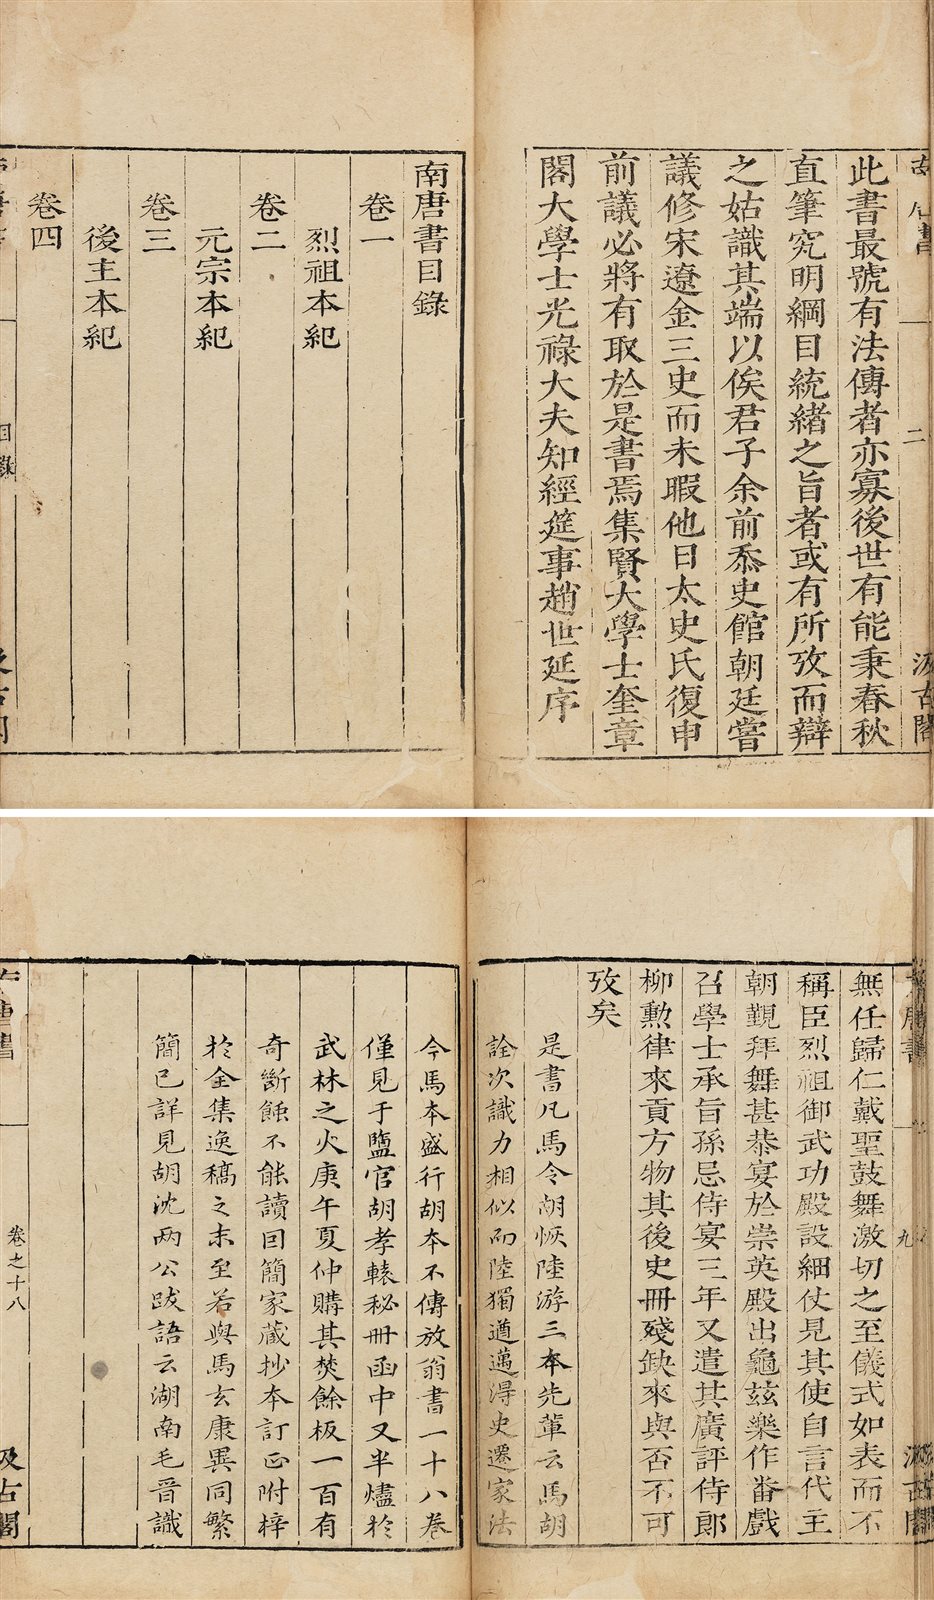 此書最號有法傳者亦寡後世有能秉春秋
直筆究明綱目統緒之旨者或有所攷而辯
之姑識其端以俟君子余前忝史館朝廷嘗
議修宋遼金三史而未暇他日太史氏復申
前議必將有取於是書焉集賢大學士奎章
閣大學士光祿大夫知經筵事趙世延序
二
汲古閣
南唐書目錄
卷一
烈祖本紀
卷二
元宗本紀
卷三
後主本紀
卷四
目錄
無任歸仁戴聖鼓舞激切之至儀式如表而不
稱臣烈祖御武功殿設細仗見其使自言代主
朝覲拜舞甚恭宴於崇英殿出龜玆樂作番戲
召學士承旨孫忌侍宴三年又遣其廣評侍郎
柳勲律來貢方物其後史冊殘缺來與否不可
攷矣
九
是書凡馬令胡恢陸游三本先輩云馬胡
詮次識力相似而陸獨遒邁得史遷家法
今馬本盛行胡本不傳放翁書一十八卷
僅見于鹽官胡孝轅秘冊函中又半燼於
武林之火庚午夏仲購其焚餘板一百有
奇斷蝕不能讀因簡家藏抄本訂正附梓
於全集逸稿之末至若與馬玄康異同繁
簡已詳見胡沈兩公跋語云湖南毛晉識
卷之十八
汲古閣